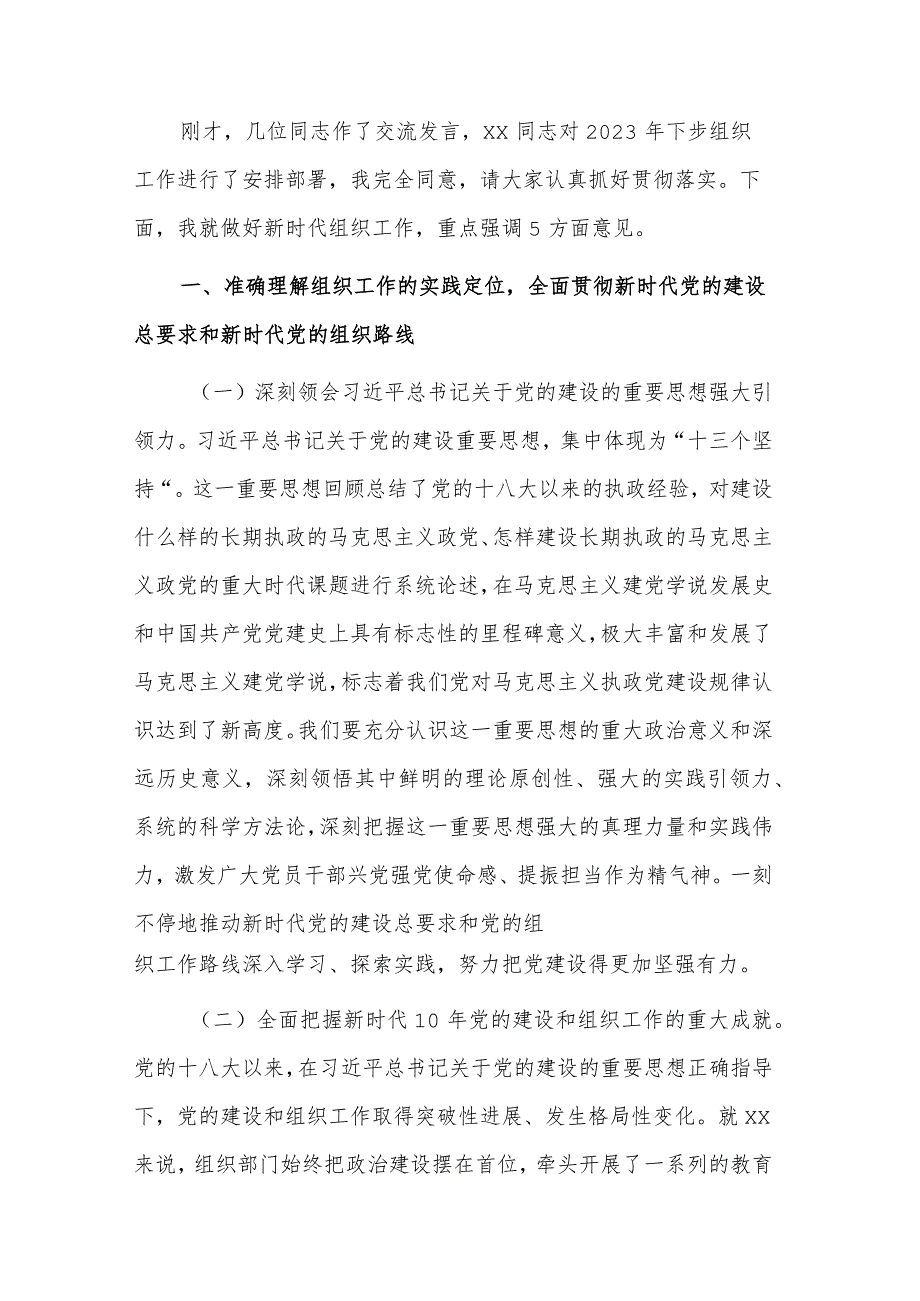 刚才，几位同志作了交流发言，XX 同志对 2023 年下步组织
工作进行了安排部署，我完全同意，请大家认真抓好贯彻落实。下
面，我就做好新时代组织工作，重点强调 5 方面意见。
一、准确理解组织工作的实践定位，全面贯彻新时代党的建设
总要求和新时代党的组织路线
（一）深刻领会习近平总书记关于党的建设的重要思想强大引
领力。习近平总书记关于党的建设重要思想，集中体现为“十三个坚
持“。这一重要思想回顾总结了党的十八大以来的执政经验，对建设
什么样的长期执政的马克思主义政党、怎样建设长期执政的马克思主
义政党的重大时代课题进行系统论述，在马克思主义建党学说发展史
和中国共产党党建史上具有标志性的里程碑意义，极大丰富和发展了
马克思主义建党学说，标志着我们党对马克思主义执政党建设规律认
识达到了新高度。我们要充分认识这一重要思想的重大政治意义和深
远历史意义，深刻领悟其中鲜明的理论原创性、强大的实践引领力、
系统的科学方法论，深刻把握这一重要思想强大的真理力量和实践伟
力，激发广大党员干部兴党强党使命感、提振担当作为精气神。一刻
不停地推动新时代党的建设总要求和党的组
织工作路线深入学习、探索实践，努力把党建设得更加坚强有力。
（二）全面把握新时代 10 年党的建设和组织工作的重大成就。
党的十八大以来，在习近平总书记关于党的建设的重要思想正确指导
下，党的建设和组织工作取得突破性进展、发生格局性变化。就 XX
来说，组织部门始终把政治建设摆在首位，牵头开展了一系列的教育